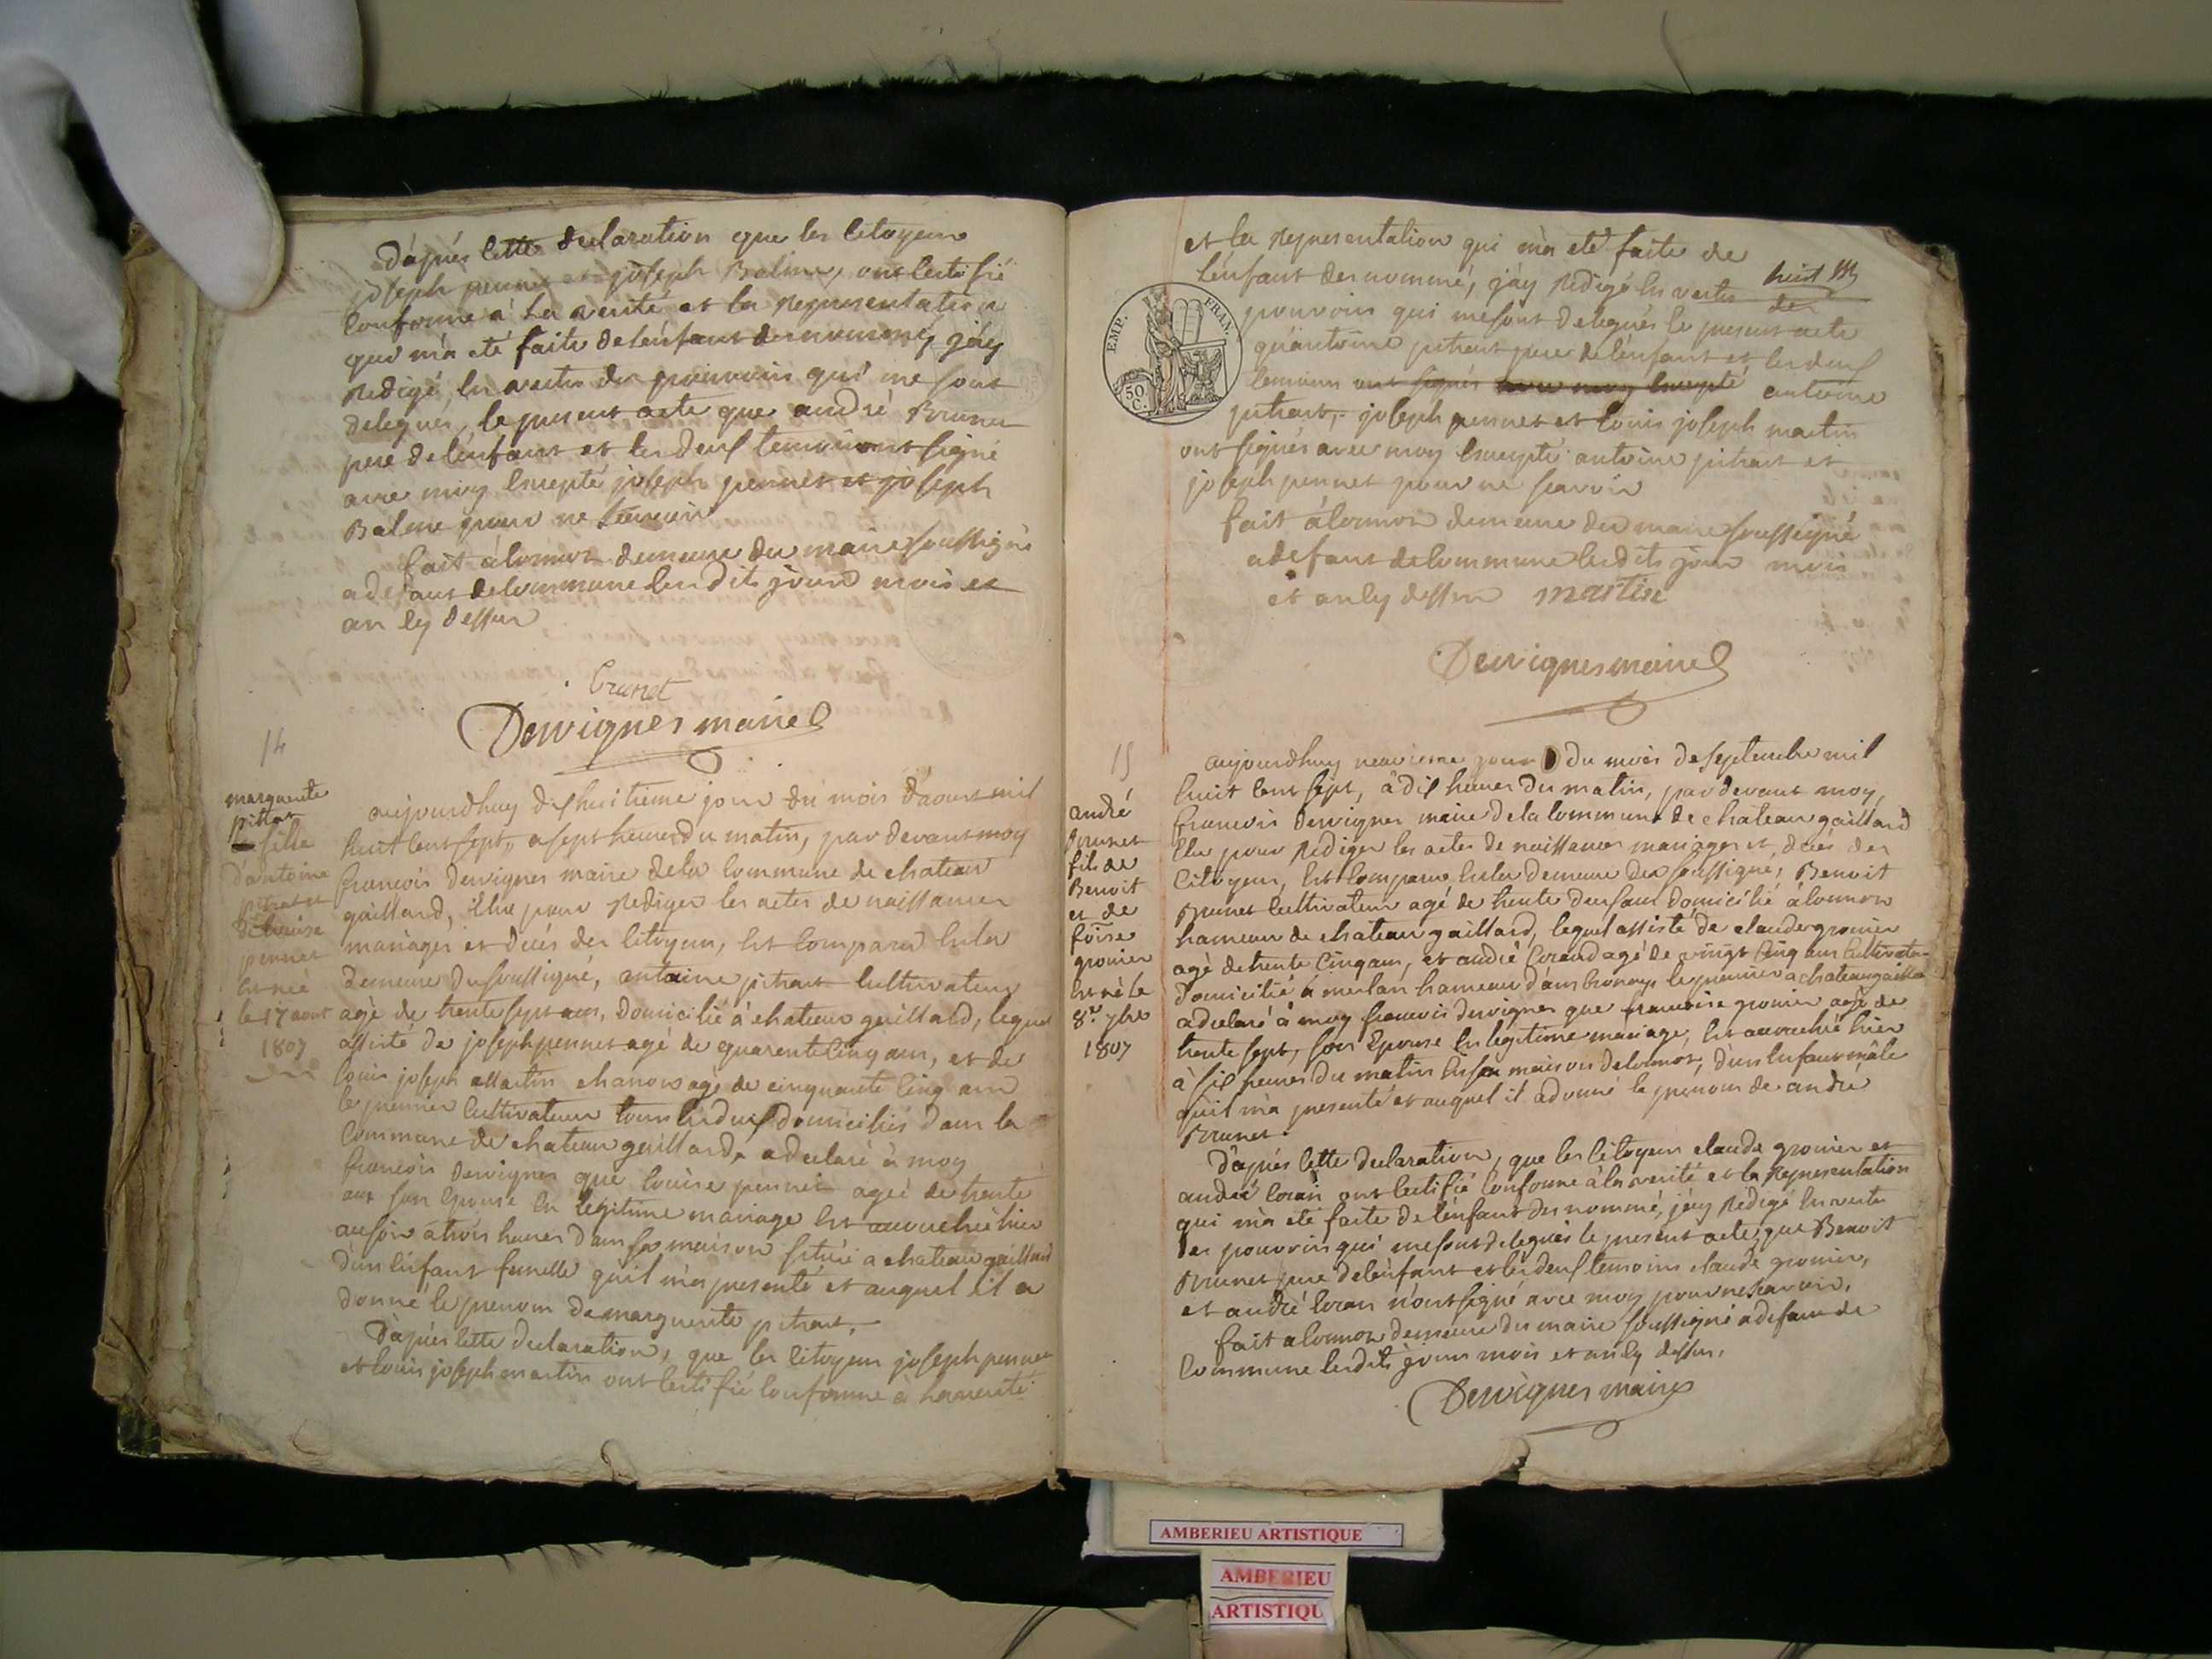 d'aprés cette declaration que les citoyens
joseph pennet et joseph Balme, ont certifié
conforme à la verité et la representation
que m'a eté faite de l'enfant denommé, j'ay
redigé, en vertu des pouvoirs qui me sont
delegués, le present acte que andré Brunet
pere de l'enfant et les deux temoins ont signé
avec moy excepté joseph pennet et joseph
Balme pour ne scavoir
fait à cormoz demeure du maire soussigné
a defaut de commune lesdits jours mois et
an cy dessus
brunet
Dervignes maire
14
marguerite
pittrat
fille
d'antoine
pitrat et
de louise
pennet
est née
le 17 aout
1807
aujourdhuy dixhuitieme jour du mois d'aoust mil
huit cent sept, a sept heures du matin, par devant moy
francois dervignes maire de la commune de chateau
gaillard, élu pour rediger les actes de naissances
mariages et décés des citoyens, est comparu en la
demeure du soussigné, antoine pitrat cultivateur
agé de trente sept ans, domicilié à chateau gaillard, lequel
assisté de joseph pennet agé de quarente cinq ans, et de
louis joseph martin chanois agé de cinquante cinq ans
le premier cultivateur tous les deux domiciliés dans la
commune de chateau gaillard, a declaré à moy
francois dervignes que louise pennet ageé de trente
ans son epouse en legitime mariage est accouchée hier
au soir à trois heures dans sa maison située a chateau gaillard
d'un enfant femelle qu'il m'a presenté et auquel il a
donné le prenom de marguerite pitrat.
D'aprés cette declaration, que les citoyens joseph pennet
et louis joseph martin ont certifié conforme à la verité
et la representation qui m'a eté faite de
l'enfant denommé, j'ay redigé en vertu
des
pouvoirs qui me sont delegués le present acte
qu'antoine pitrat pere de l'enfant et les deux
temoins ont signés avec moy excepté antoine
pitrat, joseph pennet et louis joseph martin
ont signés avec moy excepté antoine pitrat et
joseph pennet pour ne scavoir
fait à cormoz demeure du maire soussigné
a defaut de commune lesdits jour mois
et an cy dessus martin
EMP. FRAN.
50 C.
Dervignes maire
15
andré
brunet
fils de
Benoit
et de
groiner
est né le
8e 7bre
1807
aujourdhuy neuvieme jour du mois de septembre mil
huit cent sept, à dix heures du matin, par devant moy,
francois dervignes maire de la commune de chateau gaillard
elu pour rediger les actes de naissances mariages et décés des
citoyens, est comparu en la demeure du soussigné, Benoit
Brunet cultivateur agé de trente deux ans domicilié à cormoz
hameau de chateau gaillard, lequel assisté de claude groiner
agé de trente cinq ans, et andré coran agé de vingt cinq ans cultivateurs
domicilié à merlan hameau d'ambronay, le premier a chateau gaillard
a declaré à moy francois dervignes que francoise groiner agé de
trente sept, son epouse en legitime mariage, est accouché hier
à six heures du matin en sa maison de cormoz, d'un enfant mâle
qu'il m'a presenté et auquel il a donné le prenom de andré
Brunet.
D'aprés cette declaration, que les citoyens claude groiner et
andré coran ont certifié conforme à la verité et la representation
qui m'a eté faite de l'enfant denommé, j'ay redigé en vertu
des pouvoirs qui me sont delegués le present acte, que Benoit
Brunet pere de l'enfant et les deux temoins claude groiner,
et andré coran n'ont signé avec moy pour ne scavoir,
fait a cormoz demeure du maire soussigné a defaut de
commune lesdits jours mois et an cy dessus,
Dervignes maire
AMBERIEU ARTISTIQUE
AMBERIEU
ARTISTIQU